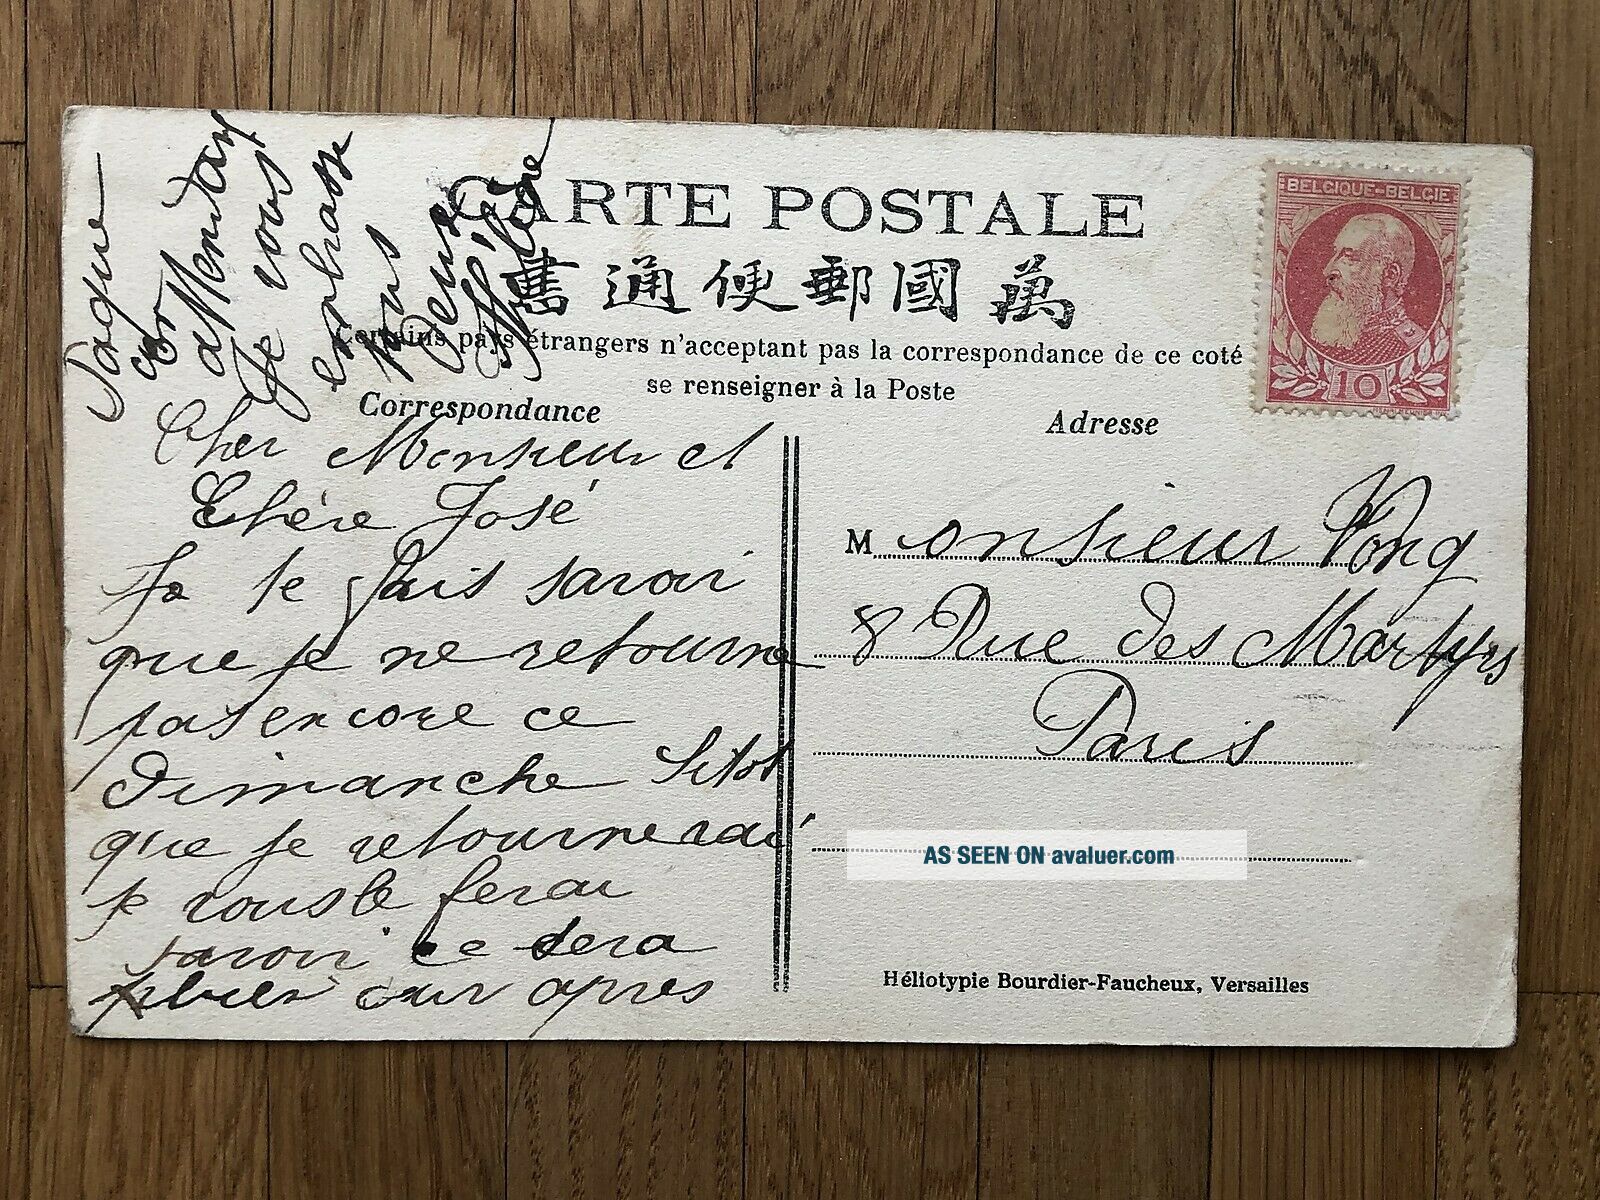 CARTE POSTALE
舊通便郵國萬
Certains pays étrangers n'acceptant pas la correspondance de ce coté
se renseigner à la Poste
Correspondance
Cher Monsieur et
Chère José
Je fais savoir
que je ne retourne
pas encore ce
Dimanche Sitot
que je retournerai
je vous le ferai
savoir ce sera
our apres
Jaque
Je vous
enbrasse
tous
Deux
Adresse
Monsieur Vong
8 Rue des Martyrs
Paris
BELGIQUE-BELGIE
10
AS SEEN ON avaluer.com
Héliotypie Bourdier-Faucheux, Versailles